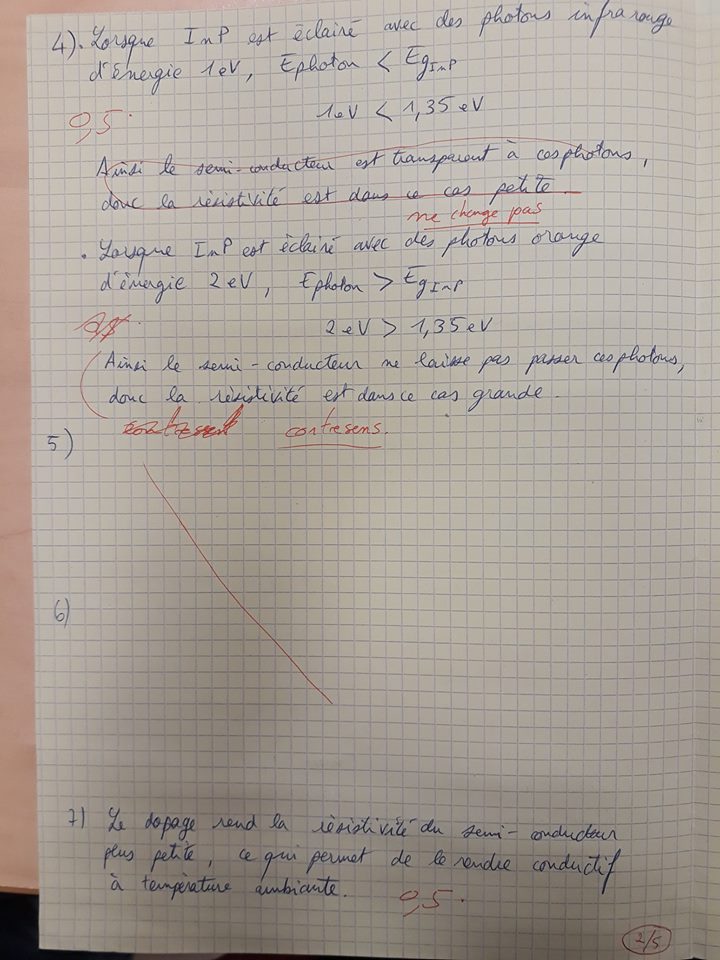 4). Lorsque InP est éclairé avec des photons infrarouge
d'énergie 1eV, Ephoton < EgInP
1eV < 1,35 eV
0,5.
Ainsi le semi-conducteur est transparent à ces photons,
donc la résistivité est dans ce cas petite.
ne change pas
. Lorsque InP est éclairé avec des photons orange
d'énergie 2 eV, Ephoton > EgInP
2 eV > 1,35 eV
Ainsi le semi-conducteur ne laisse pas passer ces photons,
donc la résistivité est dans ce cas grande.
contresens.
5)
6)
7) Le dopage rend la résistivité du semi-conducteur
plus petite, ce qui permet de le rendre conductif
à température ambiante.
0,5.
2/5